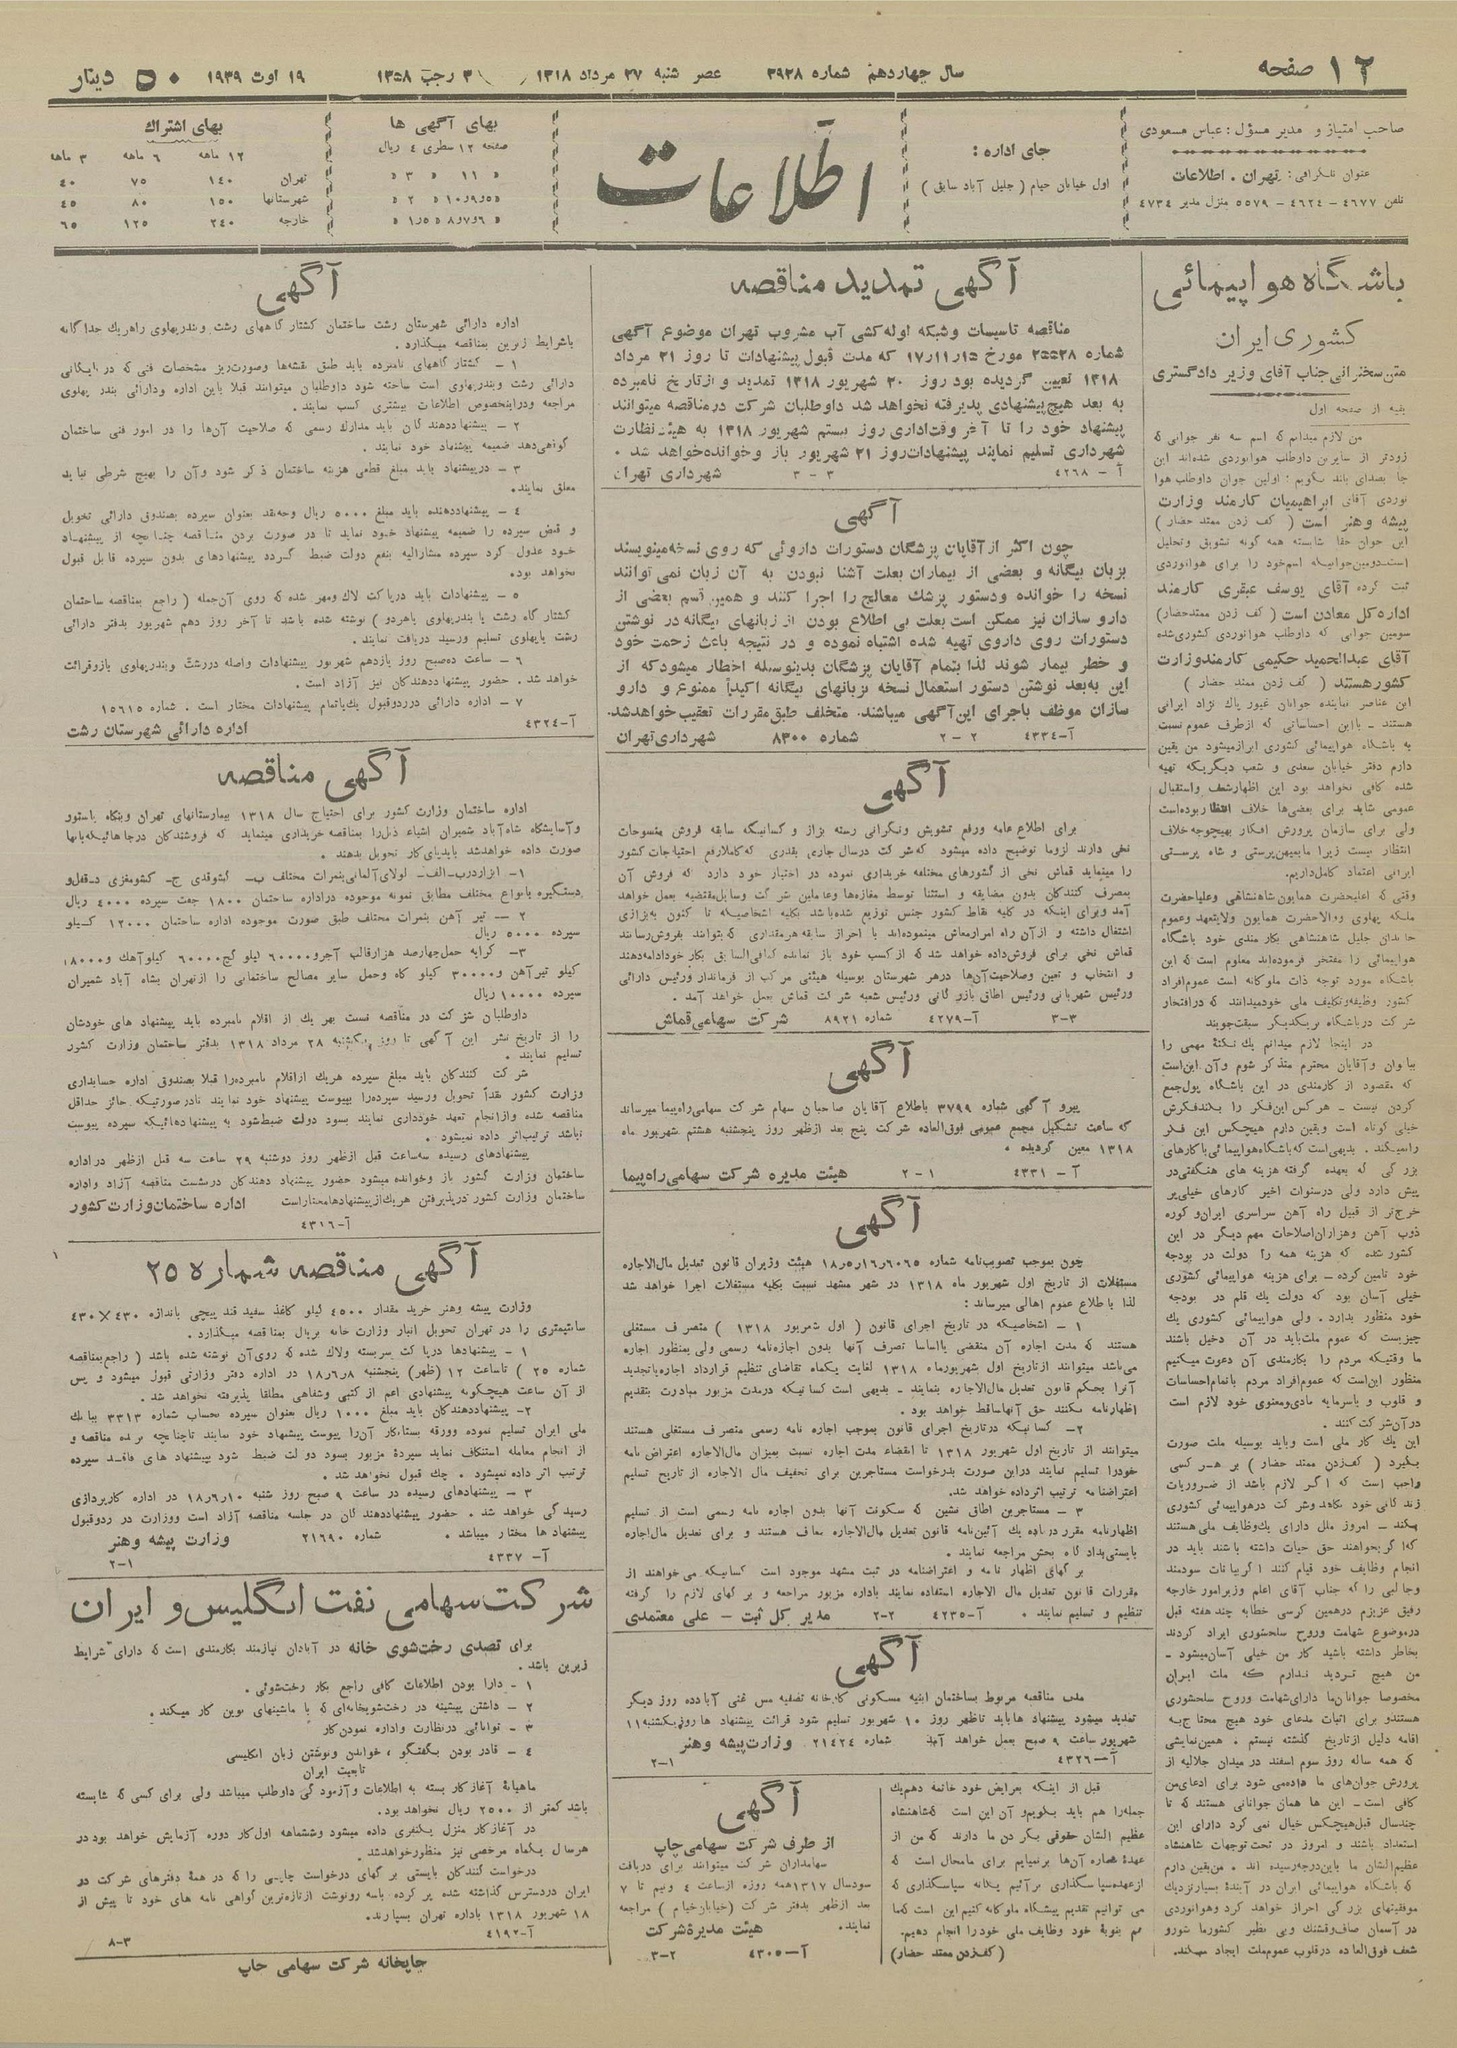 ۱۲ صفحه
سال چهاردهم شماره ۳۹۳۸ عصر شنبه ۲۷ مرداد ۱۳۱۸
۳ رجب ۱۳۵۸
۱۹ اوت ۱۹۳۹
۵۰ دینار
صاحب امتیاز و مدیر مسؤل: عباس مسعودی
عنوان تلگرافی: تهران . اطلاعات
تلفن ٤٦٧٧ – ٤٦٢٤ – ٥٥٧٩ منزل مدیر ٤٧٣٤
جای اداره:
اول خیابان خیام (جلیل آباد سابق)
اطلاعات
بهای آگهی ها
صفحه ۱۲ سطری ٤ ریال
بهای اشتراك
۱۲ ماهه ٦ ماهه ۳ ماهه
تهران ۱٤۰ ۷۵ ٤۰
شهرستانها ۱۵۰ ۸۰ ٤۵
خارجه ۲٤۰ ۱۲۵ ٦۵
باشگاه هواپیمائی
کشوری ایران
متن سخنرانی جناب آقای وزیر دادگستری
بقیه از صفحه اول
من لازم میدانم که اسم سه نفر جوانی که
زودتر از سایرین داوطلب هوانوردی شده‌اند این
جا بصدای بلند بگویم: اولین جوان داوطلب هوا
نوردی آقای ابراهیمیان کارمند وزارت
پیشه و هنر است (کف زدن ممتد حضار)
این جوان حقا شایسته همه گونه تشویق و تجلیل
است. دومین جوانیکه اسم خود را برای هوانوردی
ثبت کرده آقای یوسف عبقری کارمند
اداره کل معادن است (کف زدن ممتد حضار)
سومین جوانی که داوطلب هوانوردی کشوری شده
آقای عبدالحمید حکیمی کارمند وزارت
کشور هستند (کف زدن ممتد حضار)
این عناصر نماینده جوانان غیور پاك نژاد ایرانی
هستند – با این احساساتی که از طرف عموم نسبت
به باشگاه هواپیمائی کشوری ابراز میشود من یقین
دارم دفتر خیابان سعدی و شعب دیگریکه تهیه
شده کافی نخواهد بود این اظهار شعف و استقبال
عمومی شاید برای بعضی‌ها خلاف انتظار بوده‌است
ولی برای سازمان پرورش افکار بهیچوجه خلاف
انتظار نیست زیرا ما بمیهن‌پرستی و شاه پرستی
ایرانی اعتماد کامل داریم.
وقتی که اعلیحضرت همایون شاهنشاهی و علیاحضرت
ملکه پهلوی و والاحضرت همایون ولایتعهد و عموم
خاندان جلیل شاهنشاهی بکارمندی خود باشگاه
هواپیمائی را مفتخر فرموده‌اند معلوم است که این
باشگاه مورد توجه ذات ملوکانه است عموم افراد
کشور وظیفه و تکلیف ملی خود میدانند که در افتخار
شرکت در باشگاه بر یکدیگر سبقت جویند
در اینجا لازم میدانم یك نکتهٔ مهمی را
ببانوان و آقایان محترم متذکر شوم و آن این است
که مقصود از کارمندی در این باشگاه پول جمع
کردن نیست – هر کس این فکر را بکند فکرش
خیلی کوتاه است و یقین دارم هیچکس این فکر
را نمیکند . بدیهی است که باشگاه هواپیمائی با کارهای
بزرگی که بعهده گرفته هزینه های هنگفتی در
پیش دارد ولی در سنوات اخیر کارهای خیلی پر
خرج‌تر از قبیل راه آهن سراسری ایران و کوره
ذوب آهن و هزاران اصلاحات مهم دیگر در این
کشور شده که هزینه همه را دولت در بودجه
خود تامین کرده – برای هزینه هواپیمائی کشوری
خیلی آسان بود که دولت یك قلم در بودجه
خود منظور بدارد . ولی هواپیمائی کشوری یك
چیزیست که عموم ملت باید در آن دخیل باشند
ما وقتیکه مردم را بکارمندی آن دعوت میکنیم
منظور این است که عموم افراد مردم با تمام احساسات
و قلوب و با سرمایه مادی و معنوی خود لازم است
در آن شرکت کنند .
این یك کار ملی است و باید بوسیله ملت صورت
بگیرد (کف زدن ممتد حضار) بر هر کسی
واجب است که اگر لازم باشد از ضروریات
زندگانی خود بکاهد و شرکت در هواپیمائی کشوری
بکند – امروز ملل دارای یك وظایف ملی هستند
که اگر بخواهند حق حیات داشته باشند باید در
انجام وظایف خود قیام کنند اگر بیانات سودمند
و جالبی را که جناب آقای اعلم وزیر امور خارجه
رفیق عزیزم در همین کرسی خطابه چند هفته قبل
در موضوع شهامت و روح سلحشوری ایراد کردند
بخاطر داشته باشید کار من خیلی آسان میشود –
من هیچ تردید ندارم که ملت ایران
مخصوصا جوانان ما دارای شهامت و روح سلحشوری
هستند و برای اثبات مدعای خود هیچ محتاج به
اقامه دلیل از تاریخ گذشته نیستم . همین نمایشی
که همه ساله روز سوم اسفند در میدان جلالیه از
پرورش جوان‌های ما داده می شود برای ادعای من
کافی است – این ها همان جوانانی هستند که تا
چند سال قبل هیچکس خیال نمی کرد دارای این
استعداد باشند و امروز در تحت توجهات شاهنشاه
عظیم الشان ما باین درجه رسیده اند . من یقین دارم
که باشگاه هواپیمائی ایران در آیندهٔ بسیار نزدیك
موفقیتهای بزرگی احراز خواهد کرد و هوانوردی
در آسمان صاف و قشنك و بی نظیر کشور ما شور و
شعف فوق العاده در قلوب عموم ملت ایجاد میکند.
آگهی تمدید مناقصه
مناقصه تاسیسات و شبکه لوله‌کشی آب مشروب تهران موضوع آگهی
شماره ۲۵۵۲۸ مورخ ۱۷٫۱۱٫۱۵ که مدت قبول پیشنهادات تا روز ۲۱ مرداد
۱۳۱۸ تعیین گردیده بود روز ۲۰ شهریور ۱۳۱۸ تمدید و از تاریخ نامبرده
به بعد هیچ پیشنهادی پذیرفته نخواهد شد داوطلبان شرکت در مناقصه میتوانند
پیشنهاد خود را تا آخر وقت اداری روز بیستم شهریور ۱۳۱۸ به هیئت نظارت
شهرداری تسلیم نمایند پیشنهادات روز ۲۱ شهریور باز و خوانده خواهد شد .
آ – ٤٢٦٨ ۳ – ۳ شهرداری تهران
آگهی
چون اکثر از آقایان پزشگان دستورات داروئی که روی نسخه مینویسند
بزبان بیگانه و بعضی از بیماران بعلت آشنا نبودن به آن زبان نمی توانند
نسخه را خوانده و دستور پزشك معالج را اجرا کنند و همین قسم بعضی از
دارو سازان نیز ممکن است بعلت بی اطلاع بودن از زبانهای بیگانه در نوشتن
دستورات روی داروی تهیه شده اشتباه نموده و در نتیجه باعث زحمت خود
و خطر بیمار شوند لذا بتمام آقایان پزشگان بدینوسیله اخطار میشود که از
این به‌بعد نوشتن دستور استعمال نسخه بزبانهای بیگانه اکیداً ممنوع و دارو
سازان موظف باجرای این آگهی میباشند. متخلف طبق مقررات تعقیب خواهد شد.
آ–٤٣٣٤ ۲ – ۲ شماره ۸۳۰۰ شهرداری تهران
آگهی
برای اطلاع عامه و رفع تشویش و نگرانی رسته بزاز و کسانیکه سابقه فروش منسوجات
نخی دارند لزوما توضیح داده میشود که شرکت در سال جاری بقدری که کاملا رفع احتیاجات کشور
را مینماید قماش نخی از کشورهای مختلفه خریداری نموده در اختیار خود دارد که فروش آن
بمصرف کنندگان بدون مضایقه و استثنا توسط مغازه‌ها و عاملین شرکت و سایل مقتضیه بعمل خواهد
آمد و برای اینکه در کلیه نقاط کشور جنس توزیع شده باشد بکلیه اشخاصیکه تا کنون به بزازی
اشتغال داشته و از آن راه امرار معاش مینموده‌اند با احراز سابقه هر مقداری که بتوانند بفروش رسانند
قماش نخی برای فروش داده خواهد شد که از کسب خود باز نمانده کمافی‌السابق بکار خود ادامه دهند
و انتخاب و تعیین و صلاحیت آن‌ها در هر شهرستان بوسیله هیئتی مرکب از فرماندار و رئیس دارائی
و رئیس شهربانی و رئیس اطاق بازرگانی و رئیس شعبه شرکت قماش بعمل خواهد آمد .
۳–۳ آ–٤٢٧٩ شماره ۸۹۲۱ شرکت سهامی قماش
آگهی
پیرو آگهی شماره ۳۷۹۹ باطلاع آقایان صاحبان سهام شرکت سهامی راه پیما میرساند
که ساعت تشکیل مجمع عمومی فوق العاده شرکت پنج بعد از ظهر روز پنجشنبه هشتم شهریور ماه
۱۳۱۸ معین گردیده .
آ – ٤٣٣١ ۱–۲ هیئت مدیره شرکت سهامی راه پیما
آگهی
چون بموجب تصویب‌نامه شماره ۶۰۶۵ر۱۶ر۵ر۱۸ هیئت وزیران قانون تعدیل مال‌الاجاره
مستغلات از تاریخ اول شهریور ماه ۱۳۱۸ در شهر مشهد نسبت بکلیه مستغلات اجرا خواهد شد
لذا باطلاع عموم اهالی میرساند:
۱ – اشخاصیکه در تاریخ اجرای قانون (اول شهریور ۱۳۱۸) متصرف مستغلی
هستند که مدت اجاره آن منقضی یا اساسا تصرف آنها بدون اجازه‌نامه رسمی ولی بمنظور اجاره
می‌باشد میتوانند از تاریخ اول شهریورماه ۱۳۱۸ لغایت یکماه تقاضای تنظیم قرارداد اجاره یا تجدید
آنرا بحکم قانون تعدیل مال‌الاجاره بنمایند – بدیهی است کسانیکه در مدت مزبور مبادرت بتقدیم
اظهارنامه نکنند حق آنها ساقط خواهد بود .
۲– کسانیکه در تاریخ اجرای قانون بموجب اجاره نامه رسمی متصرف مستغلی هستند
میتوانند از تاریخ اول شهریور ۱۳۱۸ تا انقضاء مدت اجاره نسبت بمیزان مال‌الاجاره اعتراض نامه
خود را تسلیم نمایند در این صورت بدرخواست مستاجرین برای تخفیف مال الاجاره از تاریخ تسلیم
اعتراضنامه ترتیب اثر داده خواهد شد.
۳ – مستاجرین اطاق نشین که سکونت آنها بدون اجاره نامه رسمی است از تسلیم
اظهارنامه مقرر در ماده یك آئین‌نامه قانون تعدیل مال‌الاجاره معاف هستند و برای تعدیل مال‌الاجاره
بایستی بدادگاه بخش مراجعه نمایند .
برگهای اظهار نامه و اعتراضنامه در ثبت مشهد موجود است کسانیکه می خواهند از
مقررات قانون تعدیل مال الاجاره استفاده نمایند باداره مزبور مراجعه و برگهای لازم را گرفته
تنظیم و تسلیم نمایند . آ–٤٢٣٥ ۲–۲ مدیر کل ثبت – علی معتمدی
آگهی
مدت مناقصه مربوط بساختمان ابنیه مسکونی کارخانه تصفیه مس غنی آباد ده روز دیگر
تمدید میشود پیشنهاد ها باید تا ظهر روز ۱۰ شهریور تسلیم شود قرائت پیشنهاد ها روز یکشنبه ۱۱
شهریور ساعت ۹ صبح بعمل خواهد آمد شماره ۲۱٤۲٤ وزارت پیشه و هنر
آ–٤٣٢٦ ۱–۲
قبل از اینکه بعرایض خود خاتمه دهم یك
جمله را هم باید بگویم و آن این است که شاهنشاه
عظیم الشان حقوقی بگردن ما دارند که من از
عهدهٔ شماره آن‌ها بر نمیایم برای ما محال است که
از عهده سپاسگذاری بر آئیم یگانه سپاسگذاری که
می توانیم تقدیم پیشگاه ملوکانه کنیم این است که ما
هم بنوبهٔ خود وظایف ملی خود را انجام دهیم.
(کف زدن ممتد حضار)
آگهی
از طرف شرکت سهامی چاپ
سهامداران شرکت میتوانند برای دریافت
سود سال ۱۳۱۷ همه روزه از ساعت ٤ و نیم تا ۷
بعد از ظهر بدفتر شرکت (خیابان خیام) مراجعه
نمایند. هیئت مدیرهٔ شرکت
آ–٤٣٠٥ ۲–۳
آگهی
اداره دارائی شهرستان رشت ساختمان کشتارگاههای رشت و بندرپهلوی را هر یك جداگانه
با شرایط زیرین بمناقصه میگذارد .
۱ – کشتار گاههای نامبرده باید طبق نقشه‌ها و صورت ریز مشخصات فنی که در بایگانی
دارائی رشت و بندرپهلوی است ساخته شود داوطلبان میتوانند قبلا باین اداره و دارائی بندر پهلوی
مراجعه و در اینخصوص اطلاعات بیشتری کسب نمایند .
۲ – پیشنهاد دهندگان باید مدارك رسمی که صلاحیت آن‌ها را در امور فنی ساختمان
گواهی دهد ضمیمه پیشنهاد خود نمایند .
۳ – در پیشنهاد باید مبلغ قطعی هزینه ساختمان ذکر شود و آن را بهیچ شرطی نباید
معلق نمایند.
٤ – پیشنهاد دهنده باید مبلغ ۵۰۰۰ ریال وجه نقد بعنوان سپرده بصندوق دارائی تحویل
و قبض سپرده را ضمیمه پیشنهاد خود نماید تا در صورت بردن مناقصه چنانچه از پیشنهاد
خود عدول کرد سپرده مشارالیه بنفع دولت ضبط گردد پیشنهادهای بدون سپرده قابل قبول
نخواهد بود.
۵ – پیشنهادات باید در پاکت لاك و مهر شده که روی آن جمله (راجع بمناقصه ساختمان
کشتار گاه رشت یا بندرپهلوی یا هر دو) نوشته شده باشد تا آخر روز دهم شهریور بدفتر دارائی
رشت یا پهلوی تسلیم و رسید دریافت نمایند .
٦ – ساعت ده صبح روز یازدهم شهریور پیشنهادات واصله در رشت و بندرپهلوی باز و قرائت
خواهد شد . حضور پیشنهاد دهندگان نیز آزاد است .
۷ – اداره دارائی در رد و قبول یك یا تمام پیشنهادات مختار است . شماره ۱۵٦۱۵
آ–٤٣٢٤ اداره دارائی شهرستان رشت
آگهی مناقصه
اداره ساختمان وزارت کشور برای احتیاج سال ۱۳۱۸ بیمارستانهای تهران و بنگاه پاستور
و آسایشگاه شاه‌آباد شمیران اشیاء ذیل را بمناقصه خریداری مینماید که فروشندگان در جاهائیکه بآنها
صورت داده خواهد شد باید پای کار تحویل بدهند .
۱– ابزار درب–الف– لولای آلمانی بنمرات مختلف
دستگیره بانواع مختلف مطابق نمونه موجوده در اداره ساختمان ۱۸۰۰ جفت سپرده ٤۰۰۰ ریال
۲ –– تیر آهن بنمرات مختلف طبق صورت موجوده اداره ساختمان ۱۲۰۰۰ کیلو
سپرده ۵۰۰۰ ریال
۳– کرایه حمل چهارصد هزار قالب آجر و ٦۰۰۰۰ کیلو گچ و ٦۰۰۰۰ کیلو آهك و ۱۸۰۰۰
کیلو تیر آهن و ۳۰۰۰۰ کیلو کاه و حمل سایر مصالح ساختمانی را از تهران بشاه آباد شمیران
سپرده ۱۰۰۰۰ ریال
داوطلبان شرکت در مناقصه نسبت بهر یك از اقلام نامبرده باید پیشنهاد های خودشان
را از تاریخ نشر این آگهی تا روز یکشنبه ۲۸ مرداد ۱۳۱۸ بدفتر ساختمان وزارت کشور
تسلیم نمایند .
شرکت کنندگان باید مبلغ سپرده هر یك از اقلام نامبرده را قبلا بصندوق اداره حسابداری
وزارت کشور نقداً تحویل و رسید سپرده را بپیوست پیشنهاد خود نمایند تا در صورتیکه حائز حداقل
مناقصه شده و از انجام تعهد خودداری نمایند بسود دولت ضبط شود به پیشنهادهائیکه سپرده پیوست
نباشد ترتیب اثر داده نمیشود .
پیشنهادهای رسیده سه ساعت قبل از ظهر روز دوشنبه ۲۹ ساعت سه قبل از ظهر در اداره
ساختمان وزارت کشور باز و خوانده میشود حضور پیشنهاد دهندگان در نشست مناقصه آزاد و اداره
ساختمان وزارت کشور در پذیرفتن هر یك از پیشنهادها مختار است اداره ساختمان وزارت کشور
آ–٤٣١٦
آگهی مناقصه شماره ۲۵
وزارت پیشه و هنر خرید مقدار ٤۵۰۰ کیلو کاغذ سفید قند پیچی باندازه ٤۳۰×٤۳۰
سانتیمتری را در تهران تحویل انبار وزارت خانه بریال بمناقصه میگذارد .
۱ – پیشنهادها در پاکت سربسته و لاك شده که روی آن نوشته شده باشد (راجع بمناقصه
شماره ۲۵) تا ساعت ۱۲ (ظهر) پنجشنبه ۸ر٦ر۱۸ در اداره دفتر وزارتی قبول میشود و پس
از آن ساعت هیچگونه پیشنهادی اعم از کتبی و شفاهی مطلقا پذیرفته نخواهد شد .
۲– پیشنهاد دهندگان باید مبلغ ۱۰۰۰ ریال بعنوان سپرده بحساب شماره ۳۳۱۳ ببانك
ملی ایران تسلیم نموده و ورقه بستانکار آن را پیوست پیشنهاد خود نمایند تا چنانچه برنده مناقصه و
از انجام معامله استنکاف نماید سپردهٔ مزبور بسود دولت ضبط شود بپیشنهاد های فاقد سپرده
ترتیب اثر داده نمیشود . چك قبول نخواهد شد .
۳ – پیشنهادهای رسیده در ساعت ۹ صبح روز شنبه ۱۰ر٦ر۱۸ در اداره کارپردازی
رسیدگی خواهد شد . حضور پیشنهاد دهندگان در جلسه مناقصه آزاد است و وزارت در رد و قبول
پیشنهاد ها مختار میباشد . شماره ۲۱٦۹۰ وزارت پیشه و هنر
آ– ٤٣٣٧ ۱–۲
شرکت سهامی نفت انگلیس و ایران
برای تصدی رخت‌شوی خانه در آبادان نیازمند بکارمندی است که دارای شرایط
زیرین باشد .
۱ – دارا بودن اطلاعات کافی راجع بکار رخت‌شوئی .
۲ – داشتن پیشینه در رخت‌شویخانه‌ای که با ماشینهای نوین کار میکند .
۳ – توانائی در نظارت و اداره نمودن کار
٤ – قادر بودن بگفتگو، خواندن و نوشتن زبان انگلیسی
تابعیت ایران
ماهیانهٔ آغاز کار بسته به اطلاعات و آزمودگی داوطلب میباشد ولی برای کسی که شایسته
باشد کمتر از ۲۵۰۰ ریال نخواهد بود.
در آغاز کار منزل یکنفری داده میشود و ششماهه اول کار دوره آزمایش خواهد بود در
هر سال یکماه مرخصی نیز منظور خواهد شد.
درخواست کنندگان بایستی برگهای درخواست چاپی را که در همهٔ دفترهای شرکت در
ایران در دسترس گذاشته شده پر کرده با سه رونوشت از تازه‌ترین گواهی نامه های خود تا پیش از
۱۸ شهریور ۱۳۱۸ باداره تهران بسپارند.
آ–٤١٩٢ ۳–۸
چاپخانه شرکت سهامی چاپ